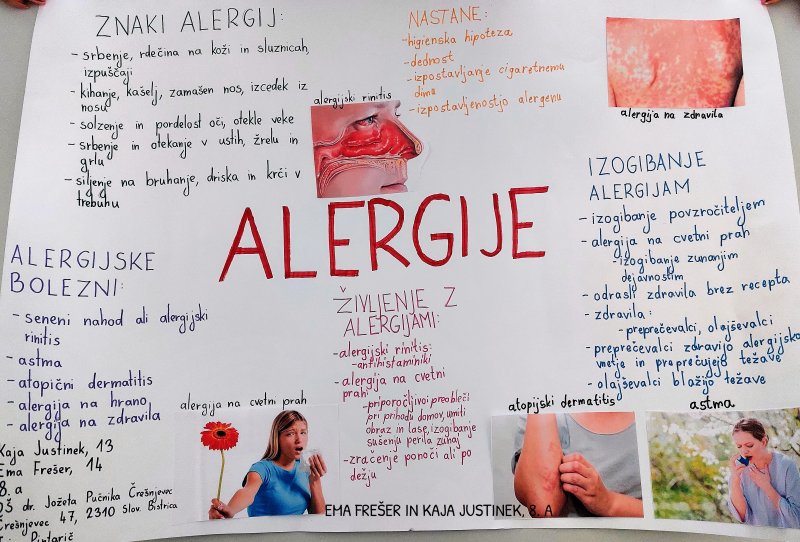 ZNAKI ALERGIJ:
- srbenje, rdečina na koži in sluznicah,
izpuščaji
- kihanje, kašelj, zamašen nos, izcedek iz
nosu
- solzenje in pordelost oči, otekle veke
- srbenje in otekanje v ustih, žrelu in
grlu
- siljenje na bruhanje, driska in krči v
trebuhu
NASTANE:
- higienska hipoteza
- dednost
- izpostavljanje cigaretnemu
dimu
- izpostavljenostjo alergenu
alergijski rinitis
alergija na zdravila
ALERGIJE
IZOGIBANJE
ALERGIJAM
- izogibanje povzročiteljem
- alergija na cvetni prah
- izogibanje zunanjim
dejavnostim
- odrasli zdravila brez recepta
- zdravila:
- preprečevalci, olajševalci
- preprečevalci zdravijo alergijsko
vnetje in preprečujejo težave
- olajševalci blažijo težave
ALERGIJSKE
BOLEZNI:
- seneni nahod ali alergijski
rinitis
- astma
- atopični dermatitis
- alergija na hrano
- alergija na zdravila
ŽIVLJENJE Z
ALERGIJAMI:
- alergijski rinitis:
- antihistaminiki
- alergija na cvetni
prah:
- priporočljivo preobleči
pri prihodu domov, umiti
obraz in lase, izogibanje
sušenju perila zunaj
- zračenje ponoči ali po
dežju
alergija na cvetni prah
atopijski dermatitis
astma
Kaja Justinek, 13
Ema Frešer, 14
8. a
OŠ dr. Jožeta Pučnika Črešnjevec
Črešnjevec 47, 2310 Slov. Bistrica
Pintarič
EMA FREŠER IN KAJA JUSTINEK, 8. A